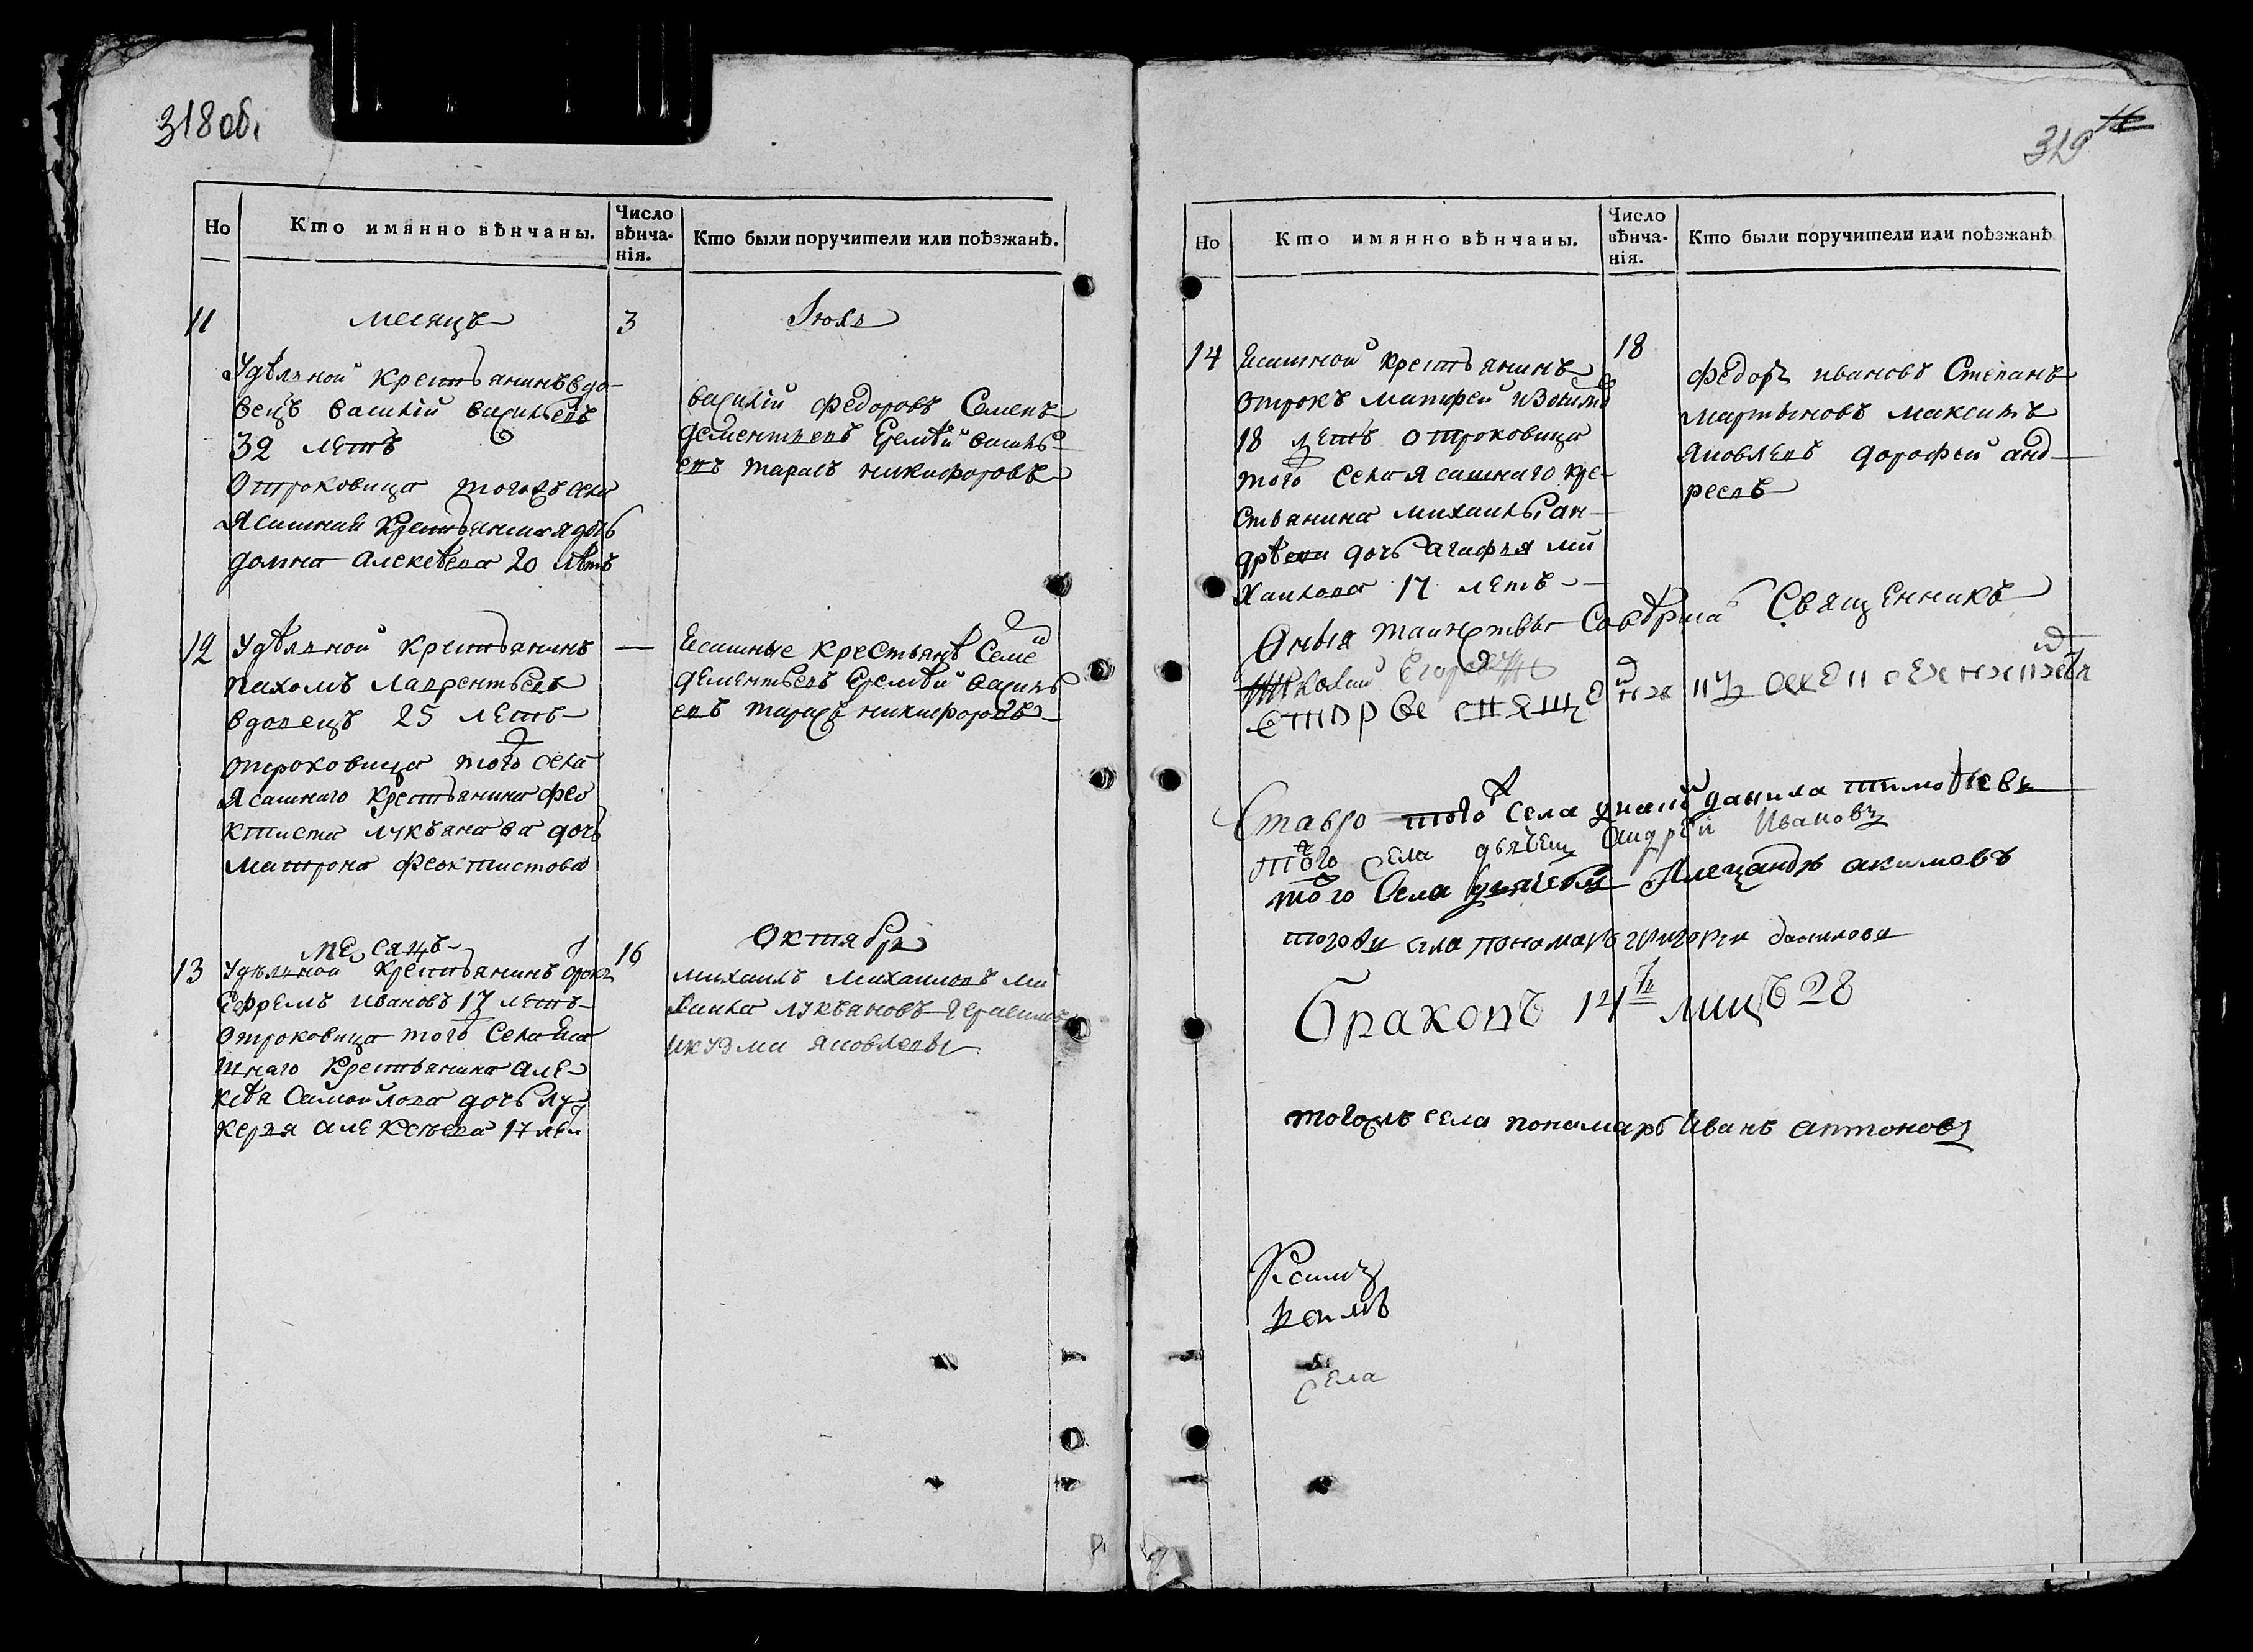 318 об.
Но
Кто имянно вѣнчаны.
Число вѣнча-нія.
Кто были поручители или поѣзжанѣ.
11 месяцъ 3 Іюля
Удѣлной крестьянинъ вдо-
вецъ василій васильевъ
32 летъ
отроковица тогожъ села
Ясашная крестьянская дочь
домна алексѣева 20 лѣтъ
василій федоровъ Семенъ
дементьевъ Еремѣй василь
евъ тарасъ никифоровъ
12 Удѣлной крестьянинъ —
пахомъ лаврентьевъ
вдовецъ 25 летъ
отроковица того села
Ясашнаго крестьянина фео
ктиста лукъянова дочь
матрона феоктистова
Есашные крестьянѣ Семе
дементьевъ Еремѣй василь
евъ тарасъ никифоровъ
месяцъ 16 Октября
13 Удѣлной крестьянинъ отрокъ
Ефремъ ивановъ 17 летъ
отроковица того села Еса
шнаго крестьянина але
ксѣя Самойлова дочь лу
керья алексеева 17 лет
михаилъ михаиловъ ми
хаила лукъяновъ герасимъ
икузма яковлевъ
319
Но
Кто имянно вѣнчаны.
Число вѣнча-нія.
Кто были поручители или поѣзжанѣ
14 Есашной крестьянинъ 18
отрокъ матфей
18 летъ отроковица
того села Ясашнаго кре-
стьянина михаила ан
дрѣева дочь агафья ми
хаилова 17 летъ
федоръ ивановъ Степанъ
мартыновъ максимъ
яковлевъ дорофеи анд
реевъ
Оныя таинствы Совѣрша Священникъ
Егоровъ
Ставро того села данила тимофѣевъ
того села дьячецъ андрей Ивановъ
того Села Алецандъ акимовъ
села пономарь григореи даниловъ
браковъ 14 лицъ 28
тогожъ села пономарь Иванъ антоновъ
села